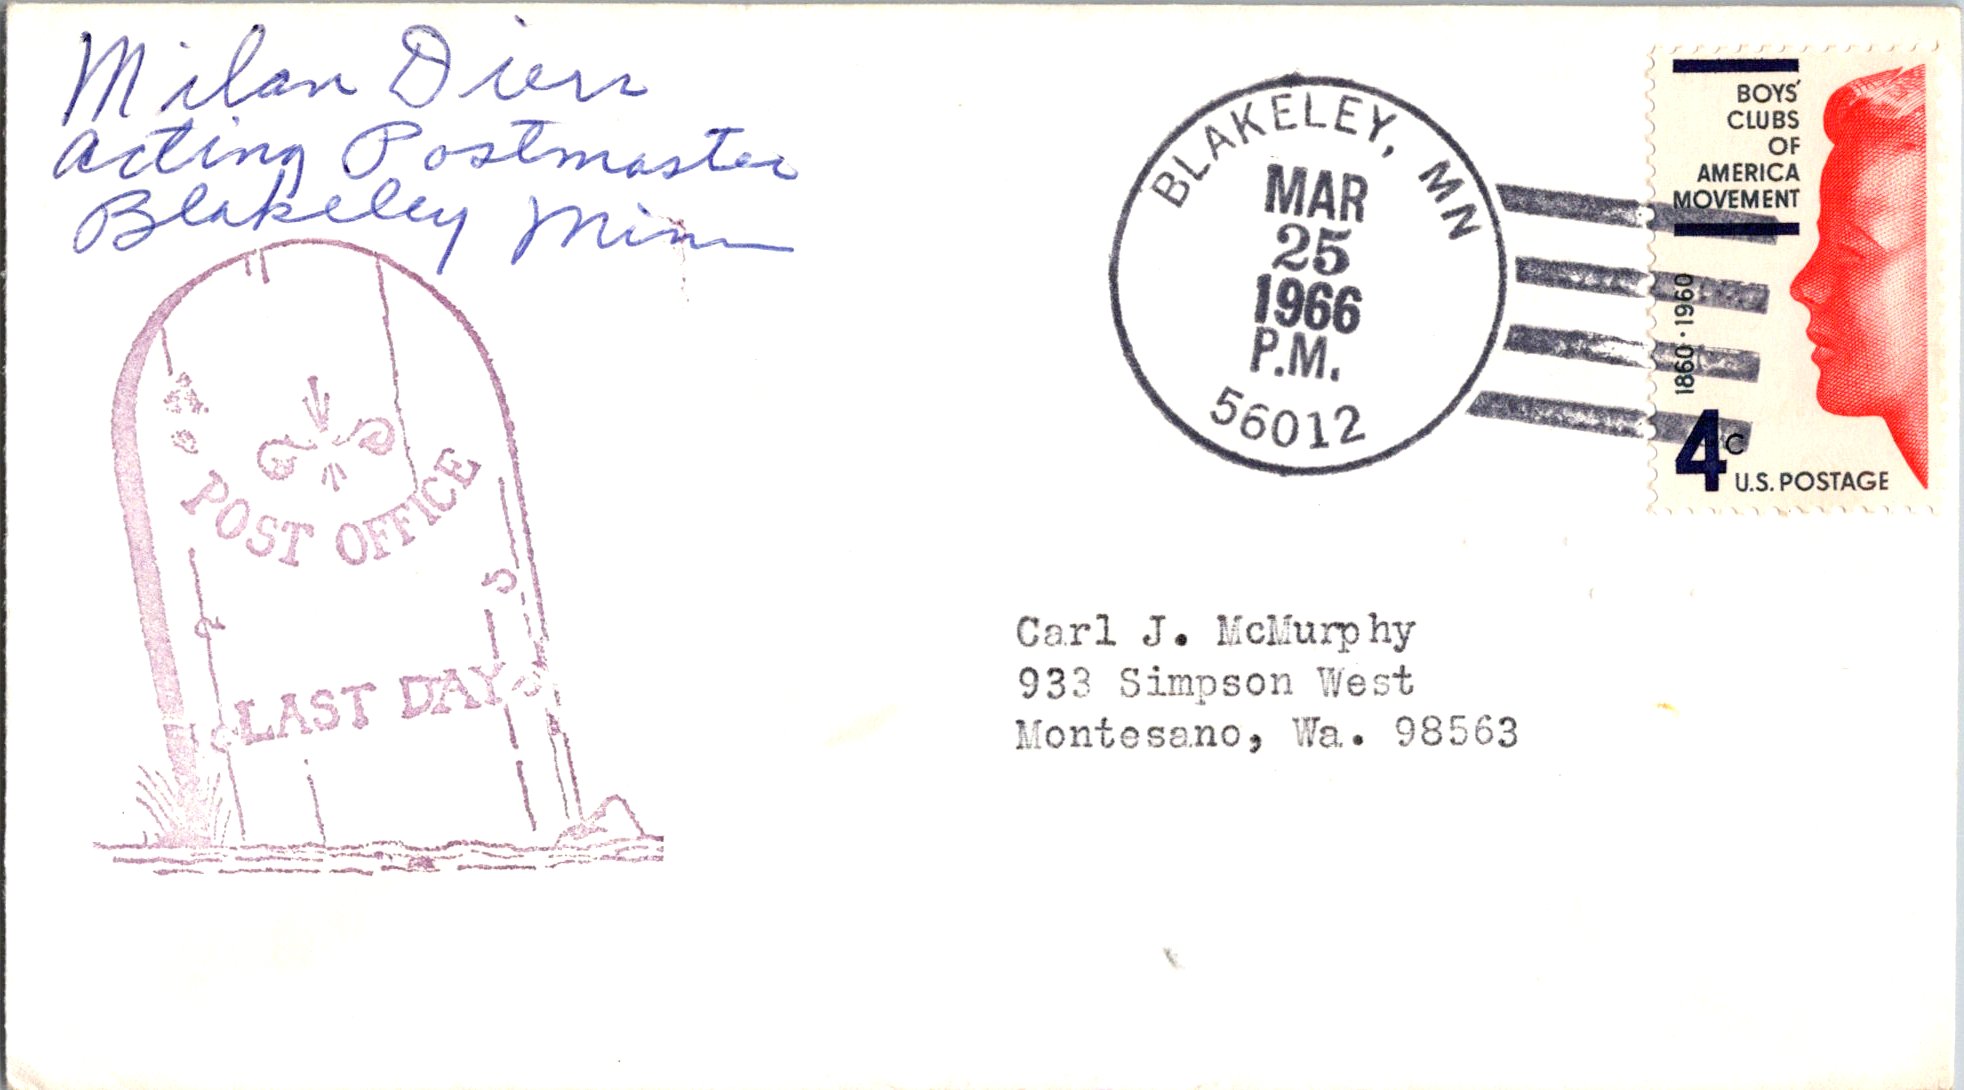 Milan Diers
Acting Postmaster
Blakeley Minn
POST OFFICE
LAST DAY
BLAKELEY, MN
MAR
25
1966
P.M.
56012
BOYS'
CLUBS
OF
AMERICA
MOVEMENT
1860·1960
4c
U.S. POSTAGE
Carl J. McMurphy
933 Simpson West
Montesano, Wa. 98563